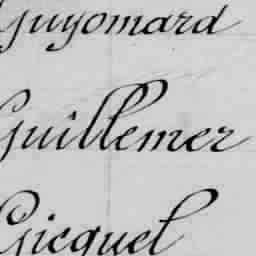 Guyomard
Guillemer
Gicquel